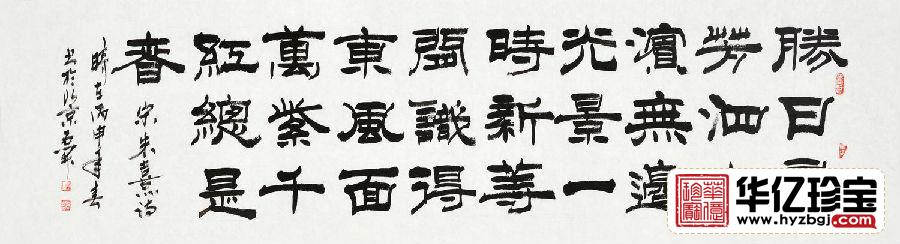 勝日
芳泗
濱無邊
光景一
時新等
閒識得
東風面
萬紫千
紅總是
春
宋朱熹詩
時在丙申年春
书於北京
华亿珍宝
www.hyzbgj.com